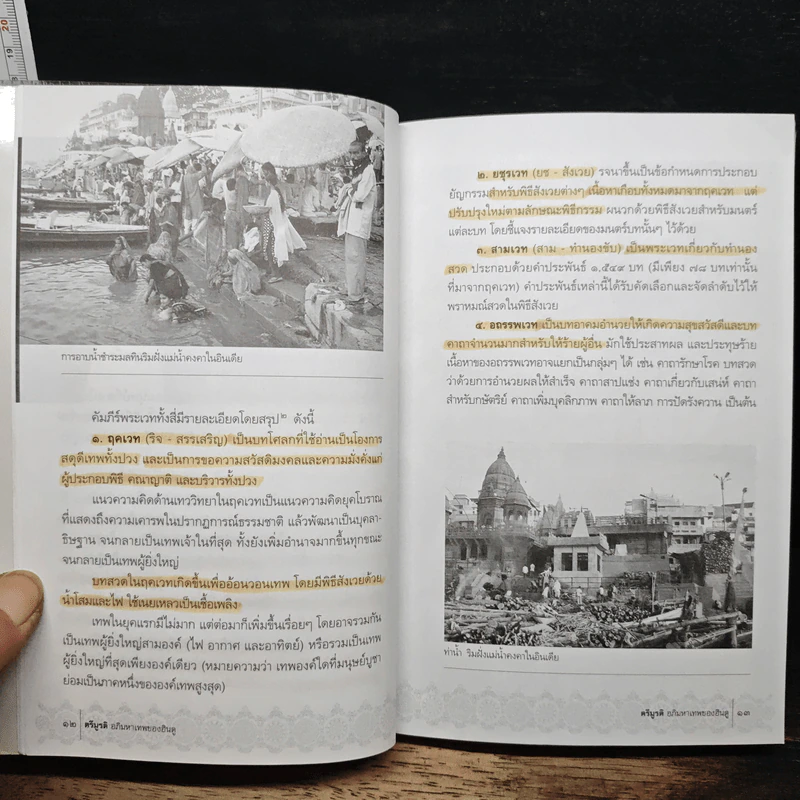 20
19
18
การอาบน้ำชำระมลทินริมฝั่งแม่น้ำคงคาในอินเดีย
คัมภีร์พระเวททั้งสี่มีรายละเอียดโดยสรุป๒ ดังนี้
๑. ฤคเวท (ริจ - สรรเสริญ) เป็นบทโศลกที่ใช้อ่านเป็นโองการ
สดุดีเทพทั้งปวง และเป็นการขอความสวัสดิมงคลและความมั่งคั่งแก่
ผู้ประกอบพิธี คณาญาติ และบริวารทั้งปวง
แนวความคิดด้านเทววิทยาในฤคเวทเป็นแนวความคิดยุคโบราณ
ที่แสดงถึงความเคารพในปรากฏการณ์ธรรมชาติ แล้วพัฒนาเป็นบุคลา-
ธิษฐาน จนกลายเป็นเทพเจ้าในที่สุด ทั้งยังเพิ่มอำนาจมากขึ้นทุกขณะ
จนกลายเป็นเทพผู้ยิ่งใหญ่
บทสวดในฤคเวทเกิดขึ้นเพื่ออ้อนวอนเทพ โดยมีพิธีสังเวยด้วย
น้ำโสมและไฟ ใช้เนยเหลวเป็นเชื้อเพลิง
เทพในยุคแรกมีไม่มาก แต่ต่อมาก็เพิ่มขึ้นเรื่อยๆ โดยอาจรวมกัน
เป็นเทพผู้ยิ่งใหญ่สามองค์ (ไฟ อากาศ และอาทิตย์) หรือรวมเป็นเทพ
ผู้ยิ่งใหญ่ที่สุดเพียงองค์เดียว (หมายความว่า เทพองค์ใดที่มนุษย์บูชา
ย่อมเป็นภาคหนึ่งขององค์เทพสูงสุด)
๑๒ ตรีมูรติ อภิมหาเทพของฮินดู
๒. ยชุรเวท (ยช - สังเวย) รจนาขึ้นเป็นข้อกำหนดการประกอบ
ยัญกรรมสำหรับพิธีสังเวยต่างๆ เนื้อหาเกือบทั้งหมดมาจากฤคเวท แต่
ปรับปรุงใหม่ตามลักษณะพิธีกรรม ผนวกด้วยพิธีสังเวยสำหรับมนตร์
แต่ละบท โดยชี้แจงรายละเอียดของมนตร์บทนั้นๆ ไว้ด้วย
๓. สามเวท (สาม - ทำนองขับ) เป็นพระเวทเกี่ยวกับทำนอง
สวด ประกอบด้วยคำประพันธ์ ๑,๕๔๙ บท (มีเพียง ๗๘ บทเท่านั้น
ที่มาจากฤคเวท) คำประพันธ์เหล่านี้ได้รับคัดเลือกและจัดลำดับไว้ให้
พราหมณ์สวดในพิธีสังเวย
๔. อถรรพเวท เป็นบทอาคมอำนวยให้เกิดความสุขสวัสดีและบท
คาถาจำนวนมากสำหรับให้ร้ายผู้อื่น มักใช้ประสาทผล และประทุษร้าย
เนื้อหาของอถรรพเวทอาจแยกเป็นกลุ่มๆ ได้ เช่น คาถารักษาโรค บทสวด
ว่าด้วยการอำนวยผลให้สำเร็จ คาถาสาปแช่ง คาถาเกี่ยวกับเสน่ห์ คาถา
สำหรับกษัตริย์ คาถาเพิ่มบุคลิกภาพ คาถาให้ลาภ การปัดรังควาน เป็นต้น
ท่าน้ำ ริมฝั่งแม่น้ำคงคาในอินเดีย
ตรีมูรติ อภิมหาเทพของฮินดู ๑๓